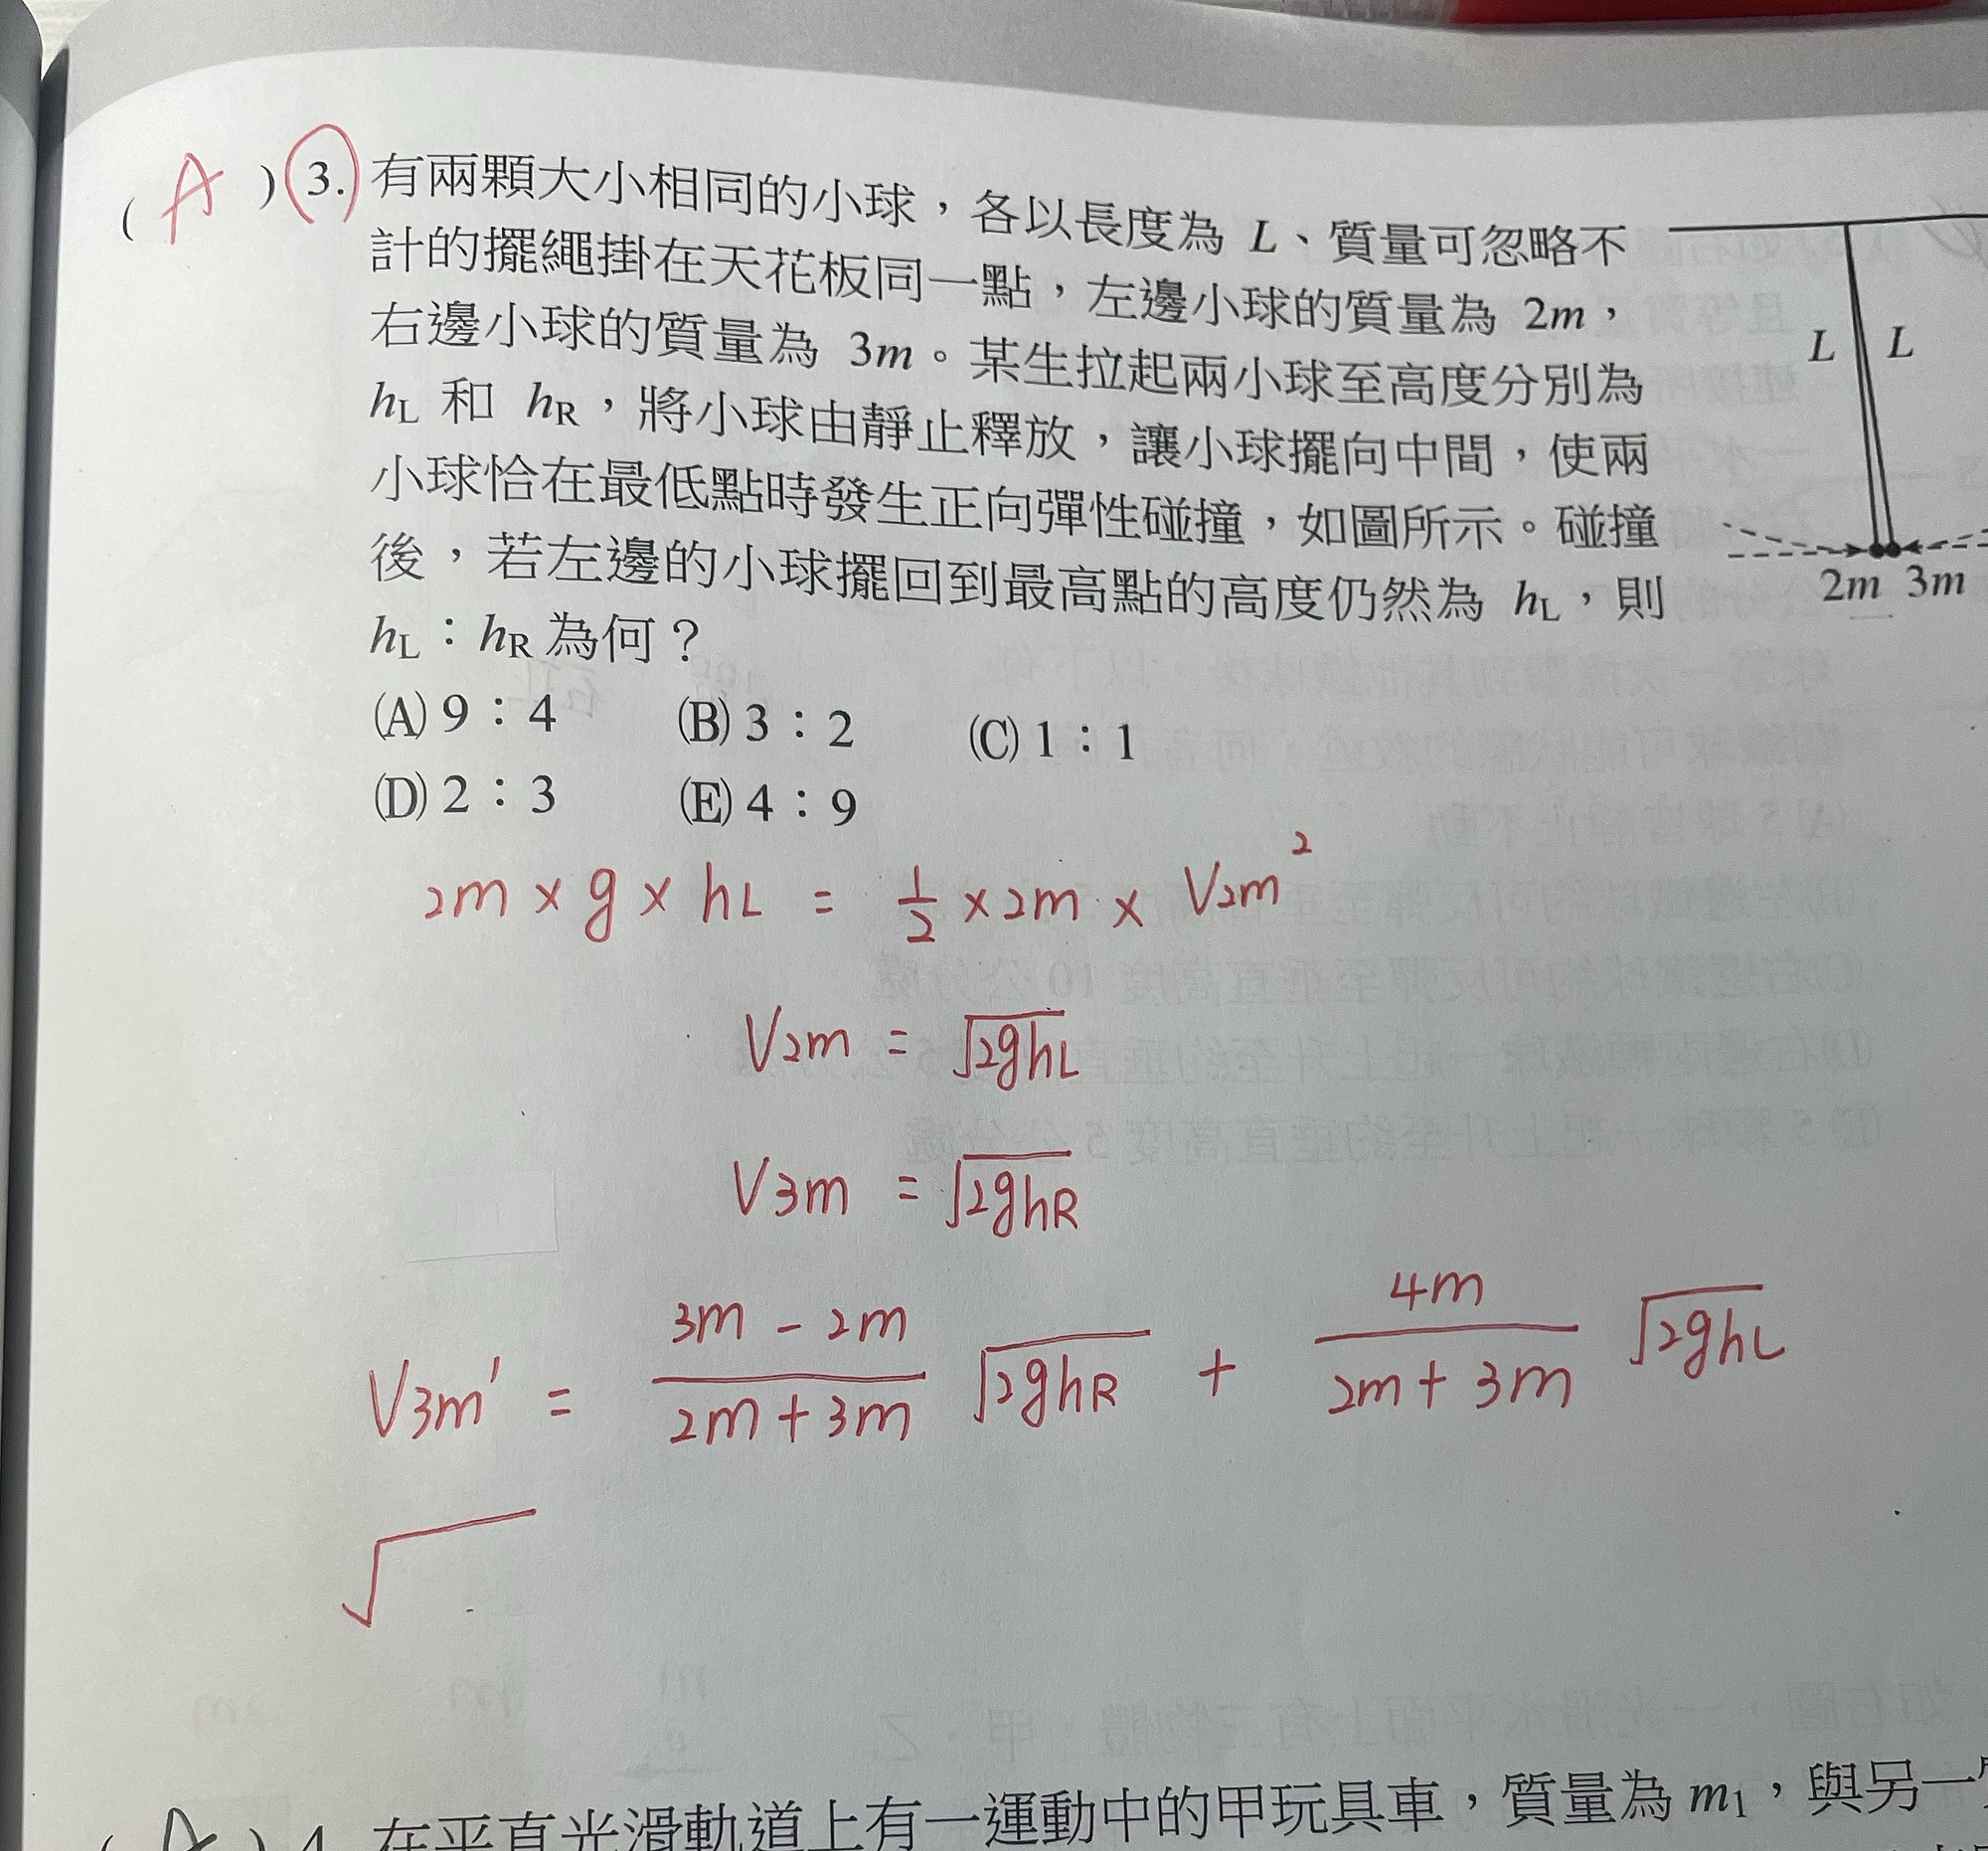 ( A ) 3. 有兩顆大小相同的小球，各以長度為 L、質量可忽略不
計的擺繩掛在天花板同一點，左邊小球的質量為 2m，
右邊小球的質量為 3m。某生拉起兩小球至高度分別為
hL 和 hR，將小球由靜止釋放，讓小球擺向中間，使兩
小球恰在最低點時發生正向彈性碰撞，如圖所示。碰撞
後，若左邊的小球擺回到最高點的高度仍然為 hL，則
hL：hR 為何？
(A) 9：4 (B) 3：2 (C) 1：1
(D) 2：3 (E) 4：9
L L
2m 3m
2m × g × hL = 1/2 × 2m × V2m²
V2m = √2ghL
V3m = √2ghR
V3m' = (3m - 2m)/(2m + 3m) √2ghR + 4m/(2m + 3m) √2ghL
√
( A ) 4. 在平直光滑軌道上有一運動中的甲玩具車，質量為 m1，與另一